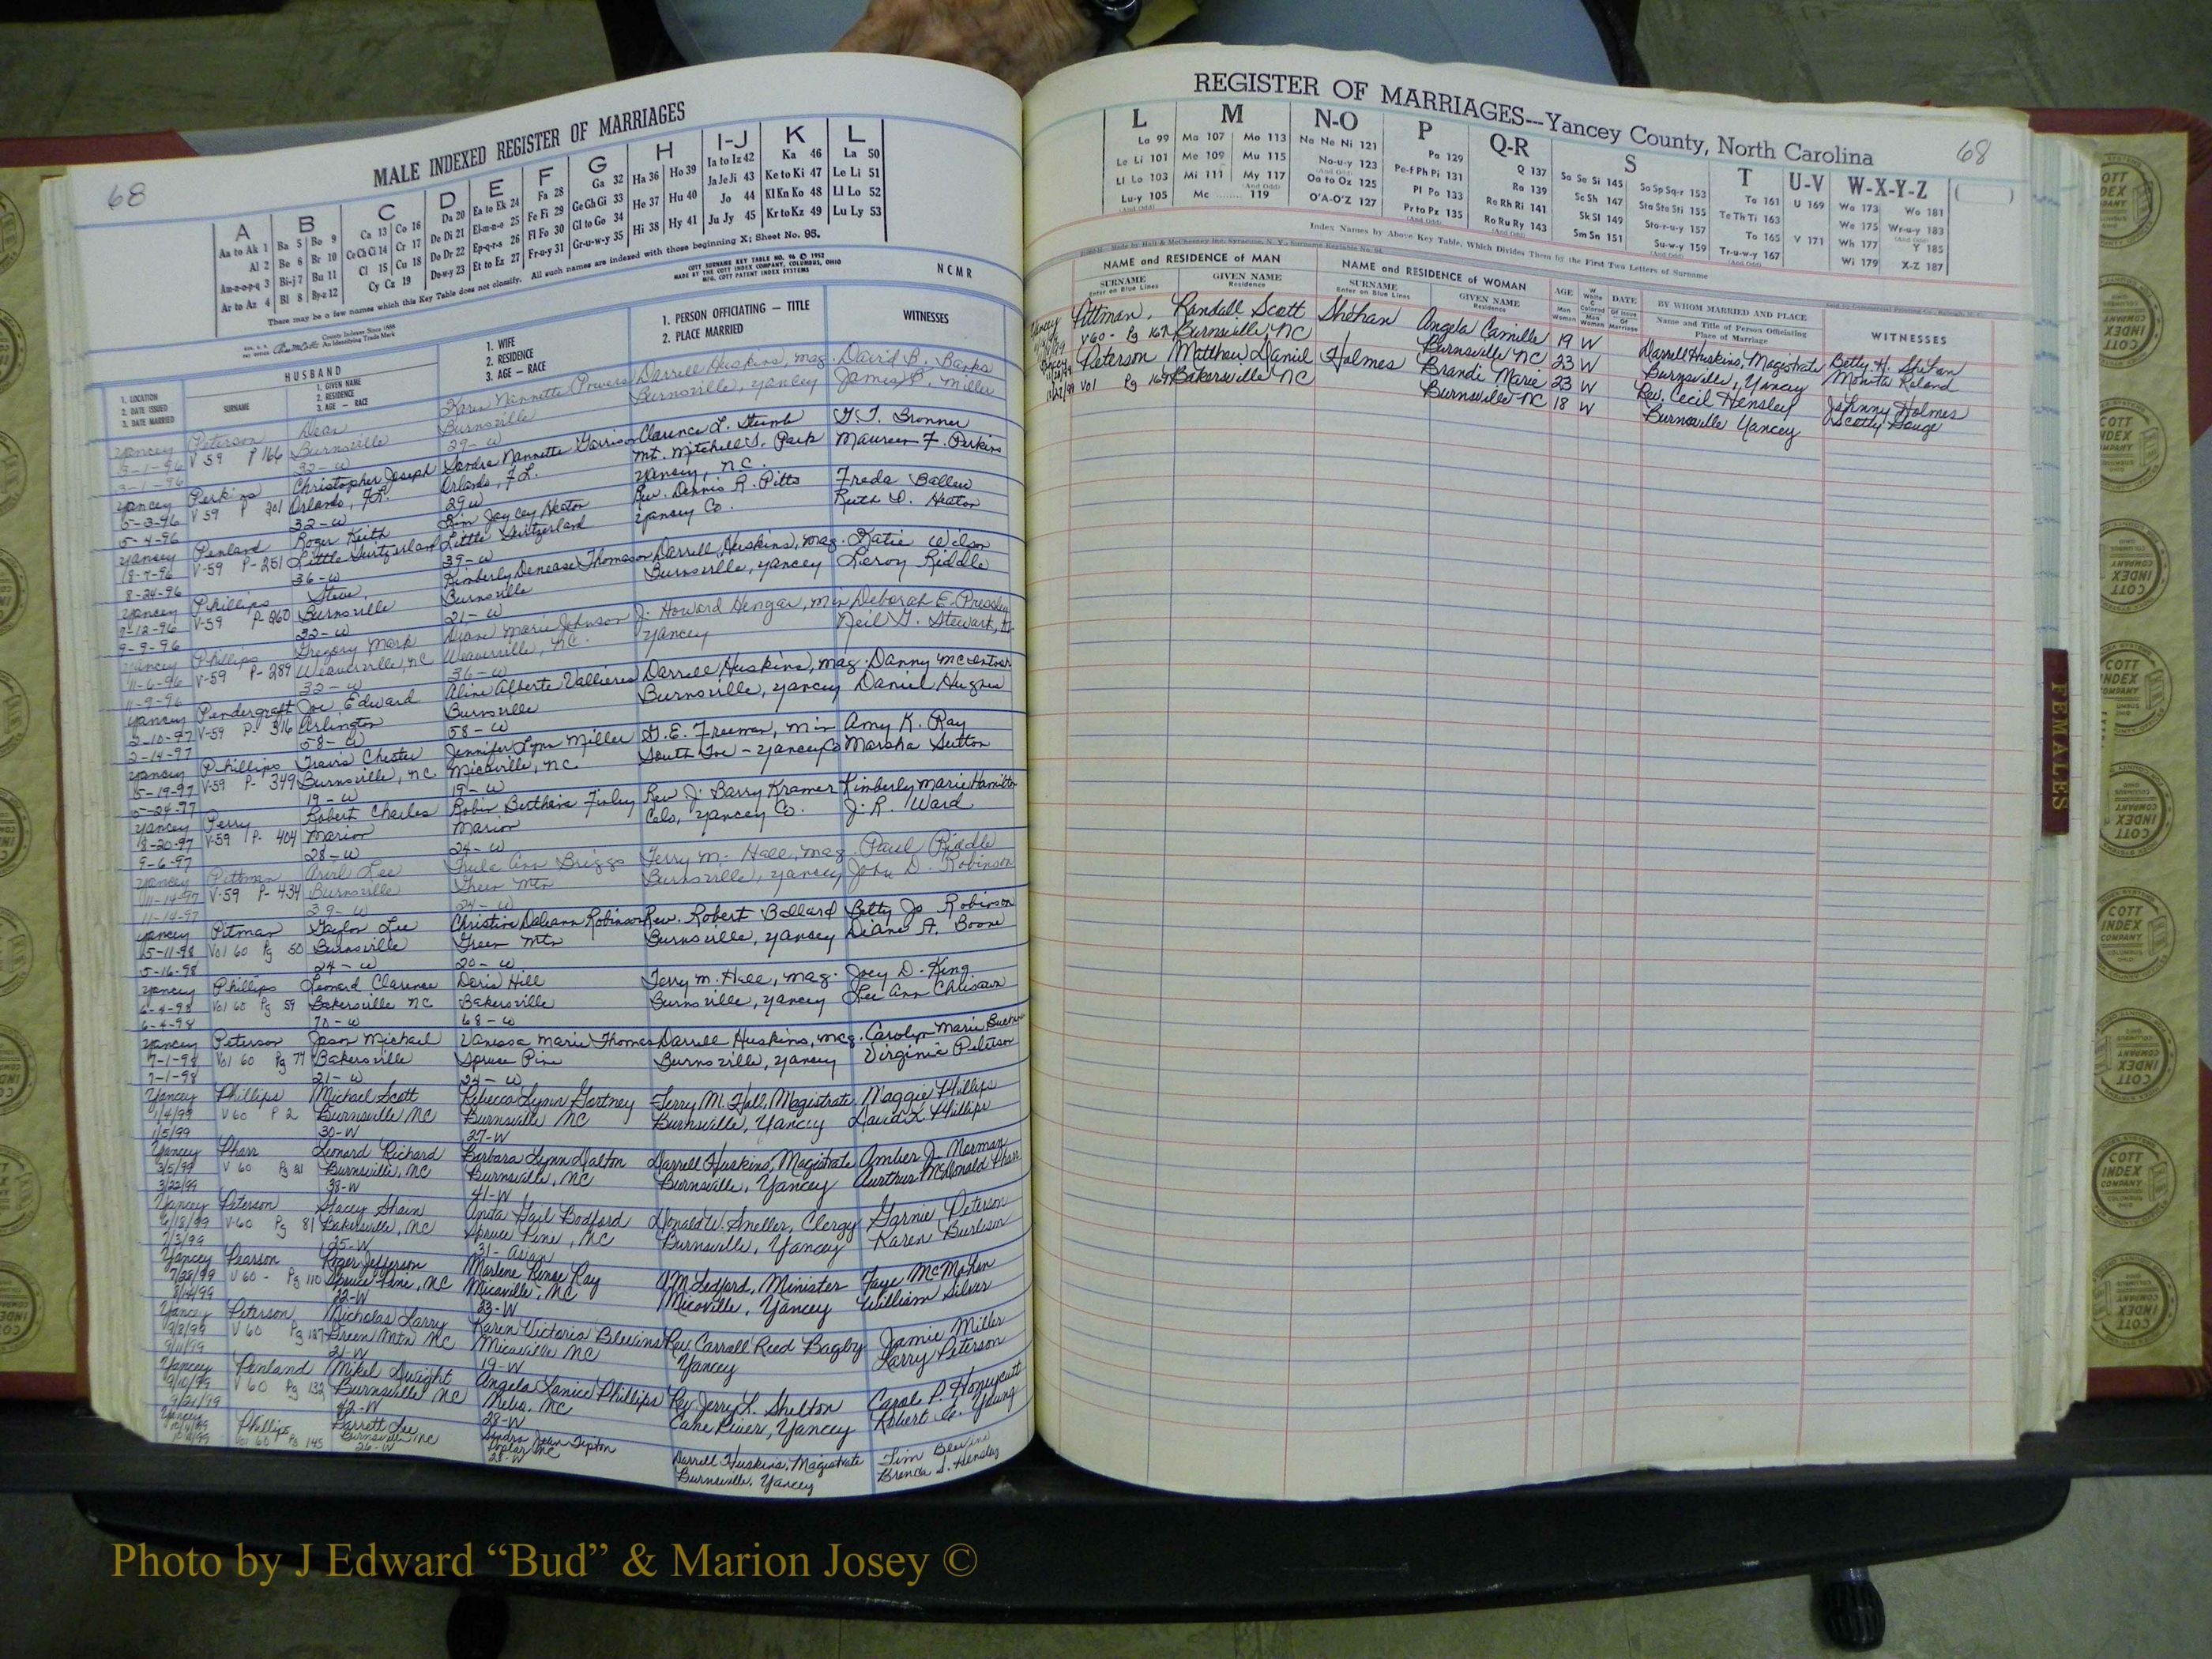 68
MALE INDEXED REGISTER OF MARRIAGES
A B C D E F G H I-J K L
Aa to Ak 1 Ba 5 Bo 9 Ca 13 Co 16 Da 20 Ea to Ek 24 Fa 28 Ga 32 Ha 36 Ho 39 Ia to Iz 42 Ka 46 La 50
Al 2 Be 6 Br 10 Ce Ch Ci 14 Cr 17 De Di 21 El-m-n-o 25 Fe Fi 29 Ge Gh Gi 33 He 37 Hu 40 Ja Je Ji 43 Ke to Ki 47 Le Li 51
Am-n-o-p-q 3 Bi-j 7 Bu 11 Cl 15 Cu 18 Do Dr 22 Ep-q-r-s 26 Fl Fo 30 Gl to Go 34 Hi 38 Hy 41 Jo 44 Kl Kn Ko 48 Ll Lo 52
Ar to Az 4 Bl 8 By-z 12 Cy Cz 19 De-w-y 23 Et to Ez 27 Fr-u-y 31 Gr-u-w-y 35 Ju Jy 45 Kr to Kz 49 Lu Ly 53
There may be a few names which this Key Table does not classify. All such names are indexed with those beginning X; Sheet No. 95.
COTT SURNAME KEY TABLE NO. 96 © 1952
MADE BY THE COTT INDEX COMPANY, COLUMBUS, OHIO
MFG. COTT PATENT INDEX SYSTEMS
NCMR
County Indexes Since 1888
An Identifying Trade Mark
1. LOCATION
2. DATE ISSUED
3. DATE MARRIED
HUSBAND
SURNAME
1. GIVEN NAME
2. RESIDENCE
3. AGE — RACE
1. WIFE
2. RESIDENCE
3. AGE — RACE
1. PERSON OFFICIATING — TITLE
2. PLACE MARRIED
WITNESSES
Yancey Peterson Dean Karen Nannette Powers Darrell Huskins, mag. David B. Banks
3-1-96 V 59 P 166 Burnsville Burnsville Burnsville, Yancey James P. Miller
3-1-96 32-W 29-W
Yancey Perkins Christopher Joseph Sandra Nannette Garrison Clarence L. Stumb G. T. Bronner
5-3-96 V 59 P 201 Orlando, FL. Orlando, FL. Mt. Mitchell S. Park Maureen F. Perkins
5-4-96 32-W 29 W Yancey, NC.
Yancey Penland Roger Keith Kim Jaycey Heaton Rev. Dennis R. Pitts Freda Ballew
8-7-96 V-59 P-251 Little Switzerland Little Switzerland Yancey Co. Ruth D. Heaton
8-24-96 36-W 39-W
Yancey Phillips Steve Kimberly Denease Thomason Darrell Huskins, mag. Katie Wilson
9-12-96 V-59 P-260 Burnsville Burnsville Burnsville, Yancey Leroy Riddle
9-9-96 22-W 21-W
Yancey Phillips Gregory Mark Diane Marie Johnson J. Howard Hengar, min Deborah E. Pressley
11-6-96 V-59 P-289 Weaverville, NC Weaverville, NC. Yancey Neil G. Stewart,
11-9-96 32-W 36-W
Yancey Pendergraft Joe Edward Aline Alberte Vallieres Darrell Huskins, mag. Danny McIntosh
2-10-97 V-59 P-316 Arlington Burnsville Burnsville, Yancey Daniel Hughes
2-14-97 58-W 58-W
Yancey Phillips Travis Chester Jennifer Lynn Miller G. E. Freeman, min Amy K. Ray
5-19-97 V-59 P-349 Burnsville, NC Micaville, NC South Toe - Yancey Co Marsha Sutton
5-24-97 19-W 19-W
Yancey Perry Robert Charles Robin Berthena Finley Rev J. Barry Kramer Kimberly Marie Hamilton
8-20-97 V-59 P-404 Marion Marion Celo, Yancey Co. J. R. Ward
9-6-97 28-W 24-W
Yancey Pittman Arvil Lee Trula Ann Briggs Terry M. Hall, mag. Paul Riddle
11-14-97 V-59 P-434 Burnsville Green Mtn Burnsville, Yancey John D. Robinson
11-14-97 39-W 24-W
Yancey Pitman Taylor Lee Christina Daleann Robinson Rev. Robert Ballard Betty Jo Robinson
5-11-98 Vol 60 Pg 50 Burnsville Green Mtn Burnsville, Yancey Diane A. Boone
5-16-98 24-W 20-W
Yancey Phillips Leonard Clarence Doris Hill Terry M. Hall, mag. Joey D. King
6-4-98 Vol 60 Pg 59 Bakersville NC Bakersville Burnsville, Yancey Lee Ann Chrisawn
6-4-98 70-W 68-W
Yancey Peterson Jason Michael Vanessa Marie Thomas Darrell Huskins, mag. Carolyn Marie
7-1-98 Vol 60 Pg 77 Bakersville Spruce Pine Burnsville, Yancey Virginia Peterson
7-1-98 21-W 24-W
Yancey Phillips Michael Scott Rebecca Lynn Gortney Terry M. Hall, Magistrate Maggie Phillips
1/4/99 V 60 P 2 Burnsville NC Burnsville NC Burnsville, Yancey David L. Phillips
1/5/99 30-W 27-W
Yancey Pharr Leonard Richard Barbara Lynn Dalton Darrell Huskins, Magistrate Amber J. Norman
3/5/99 V 60 Pg 21 Burnsville, NC Burnsville, NC Burnsville, Yancey Aurthur McDonald Pharr
3/22/99 38-W 41-W
Yancey Peterson Stacey Shain Anita Gail Bodford Donald W. Sneller, Clergy Garnie Peterson
6/18/99 V-60 Pg 81 Bakersville, NC Spruce Pine, NC Burnsville, Yancey Karen Burleson
7/3/99 25-W 31-Asian
Yancey Pearson Roger Jefferson Marlene Renae Ray Ledford, Minister Faye McMahan
7/28/99 V 60 - Pg 110 Spruce Pine, NC Micaville, NC Micaville, Yancey William Silver
8/14/99 22-W 23-W
Yancey Peterson Nicholas Larry Karen Victoria Blevins Rev. Carroll Reed Bagby Jamie Miller
9/8/99 V 60 Pg 127 Green Mtn NC Micaville NC Yancey Larry Peterson
9/11/99 21-W 19-W
Yancey Penland Mikel Dwight Angela Janice Phillips Rev Jerry L. Shelton Carol P. Honeycutt
9/10/99 V 60 Pg 132 Burnsville NC NC Cane River, Yancey Robert E. Young
9/21/99 42-W 28-W
Yancey Phillips Garrett Lee Sandra Jean Tipton Darrell Huskins, Magistrate Tim Blevins
Vol 60 Pg 145 Burnsville, NC Poplar NC Burnsville, Yancey Brenda S. Hensley
26-W 28-W
REGISTER OF MARRIAGES---Yancey County, North Carolina
68
L M N-O P Q-R S T U-V W-X-Y-Z
La 99 Ma 107 Mo 113 Na Ne Ni 121 Pa 129 Q 137 Sa Se Si 145 So Sp Sq-r 153 Ta 161 U 169 Wa 173 Wo 181
Le Li 101 Me 109 Mu 115 No-u-y 123 Pe-f Ph Pi 131 Ra 139 Sc Sh 147 Sta Ste Sti 155 Te Th Ti 163 We 175 Wr-u-y 183
Ll Lo 103 Mi 111 My 117 Oa to Oz 125 Pl Po 133 Re Rh Ri 141 Sk Sl 149 Sto-r-u-y 157 To 165 V 171 Wh 177 Y 185
Lu-y 105 Mc ........ 119 O'A-O'Z 127 Pr to Pz 135 Ro Ru Ry 143 Sm Sn 151 Su-w-y 159 Tr-u-w-y 167 Wi 179 X-Z 187
Index Names by Above Key Table, Which Divides Them by the First Two Letters of Surname
NAME and RESIDENCE of MAN
SURNAME
Enter on Blue Lines
GIVEN NAME
Residence
NAME and RESIDENCE of WOMAN
SURNAME
Enter on Blue Lines
GIVEN NAME
Residence
AGE
Man
Woman
W
White
C
Colored
Man
Woman
DATE
Of Issue
Of
Marriage
BY WHOM MARRIED AND PLACE
Name and Title of Person Officiating
Place of Marriage
WITNESSES
Yancey Pittman, Randall Scott Shehan Angela Camille 19 W Darrell Huskins, Magistrate Betty H. Shehan
V60 - Pg 162 Burnsville, NC Burnsville NC 23 W Burnsville, Yancey Monita Roland
Yancey Peterson Matthew Daniel Holmes Brandi Marie 23 W Rev. Cecil Hensley Johnny Holmes
Vol Pg 164 Bakersville NC Burnsville NC 18 W Burnsville Yancey Scotty Gouge
FEMALES
COTT
INDEX
COMPANY
Photo by J Edward “Bud” & Marion Josey ©